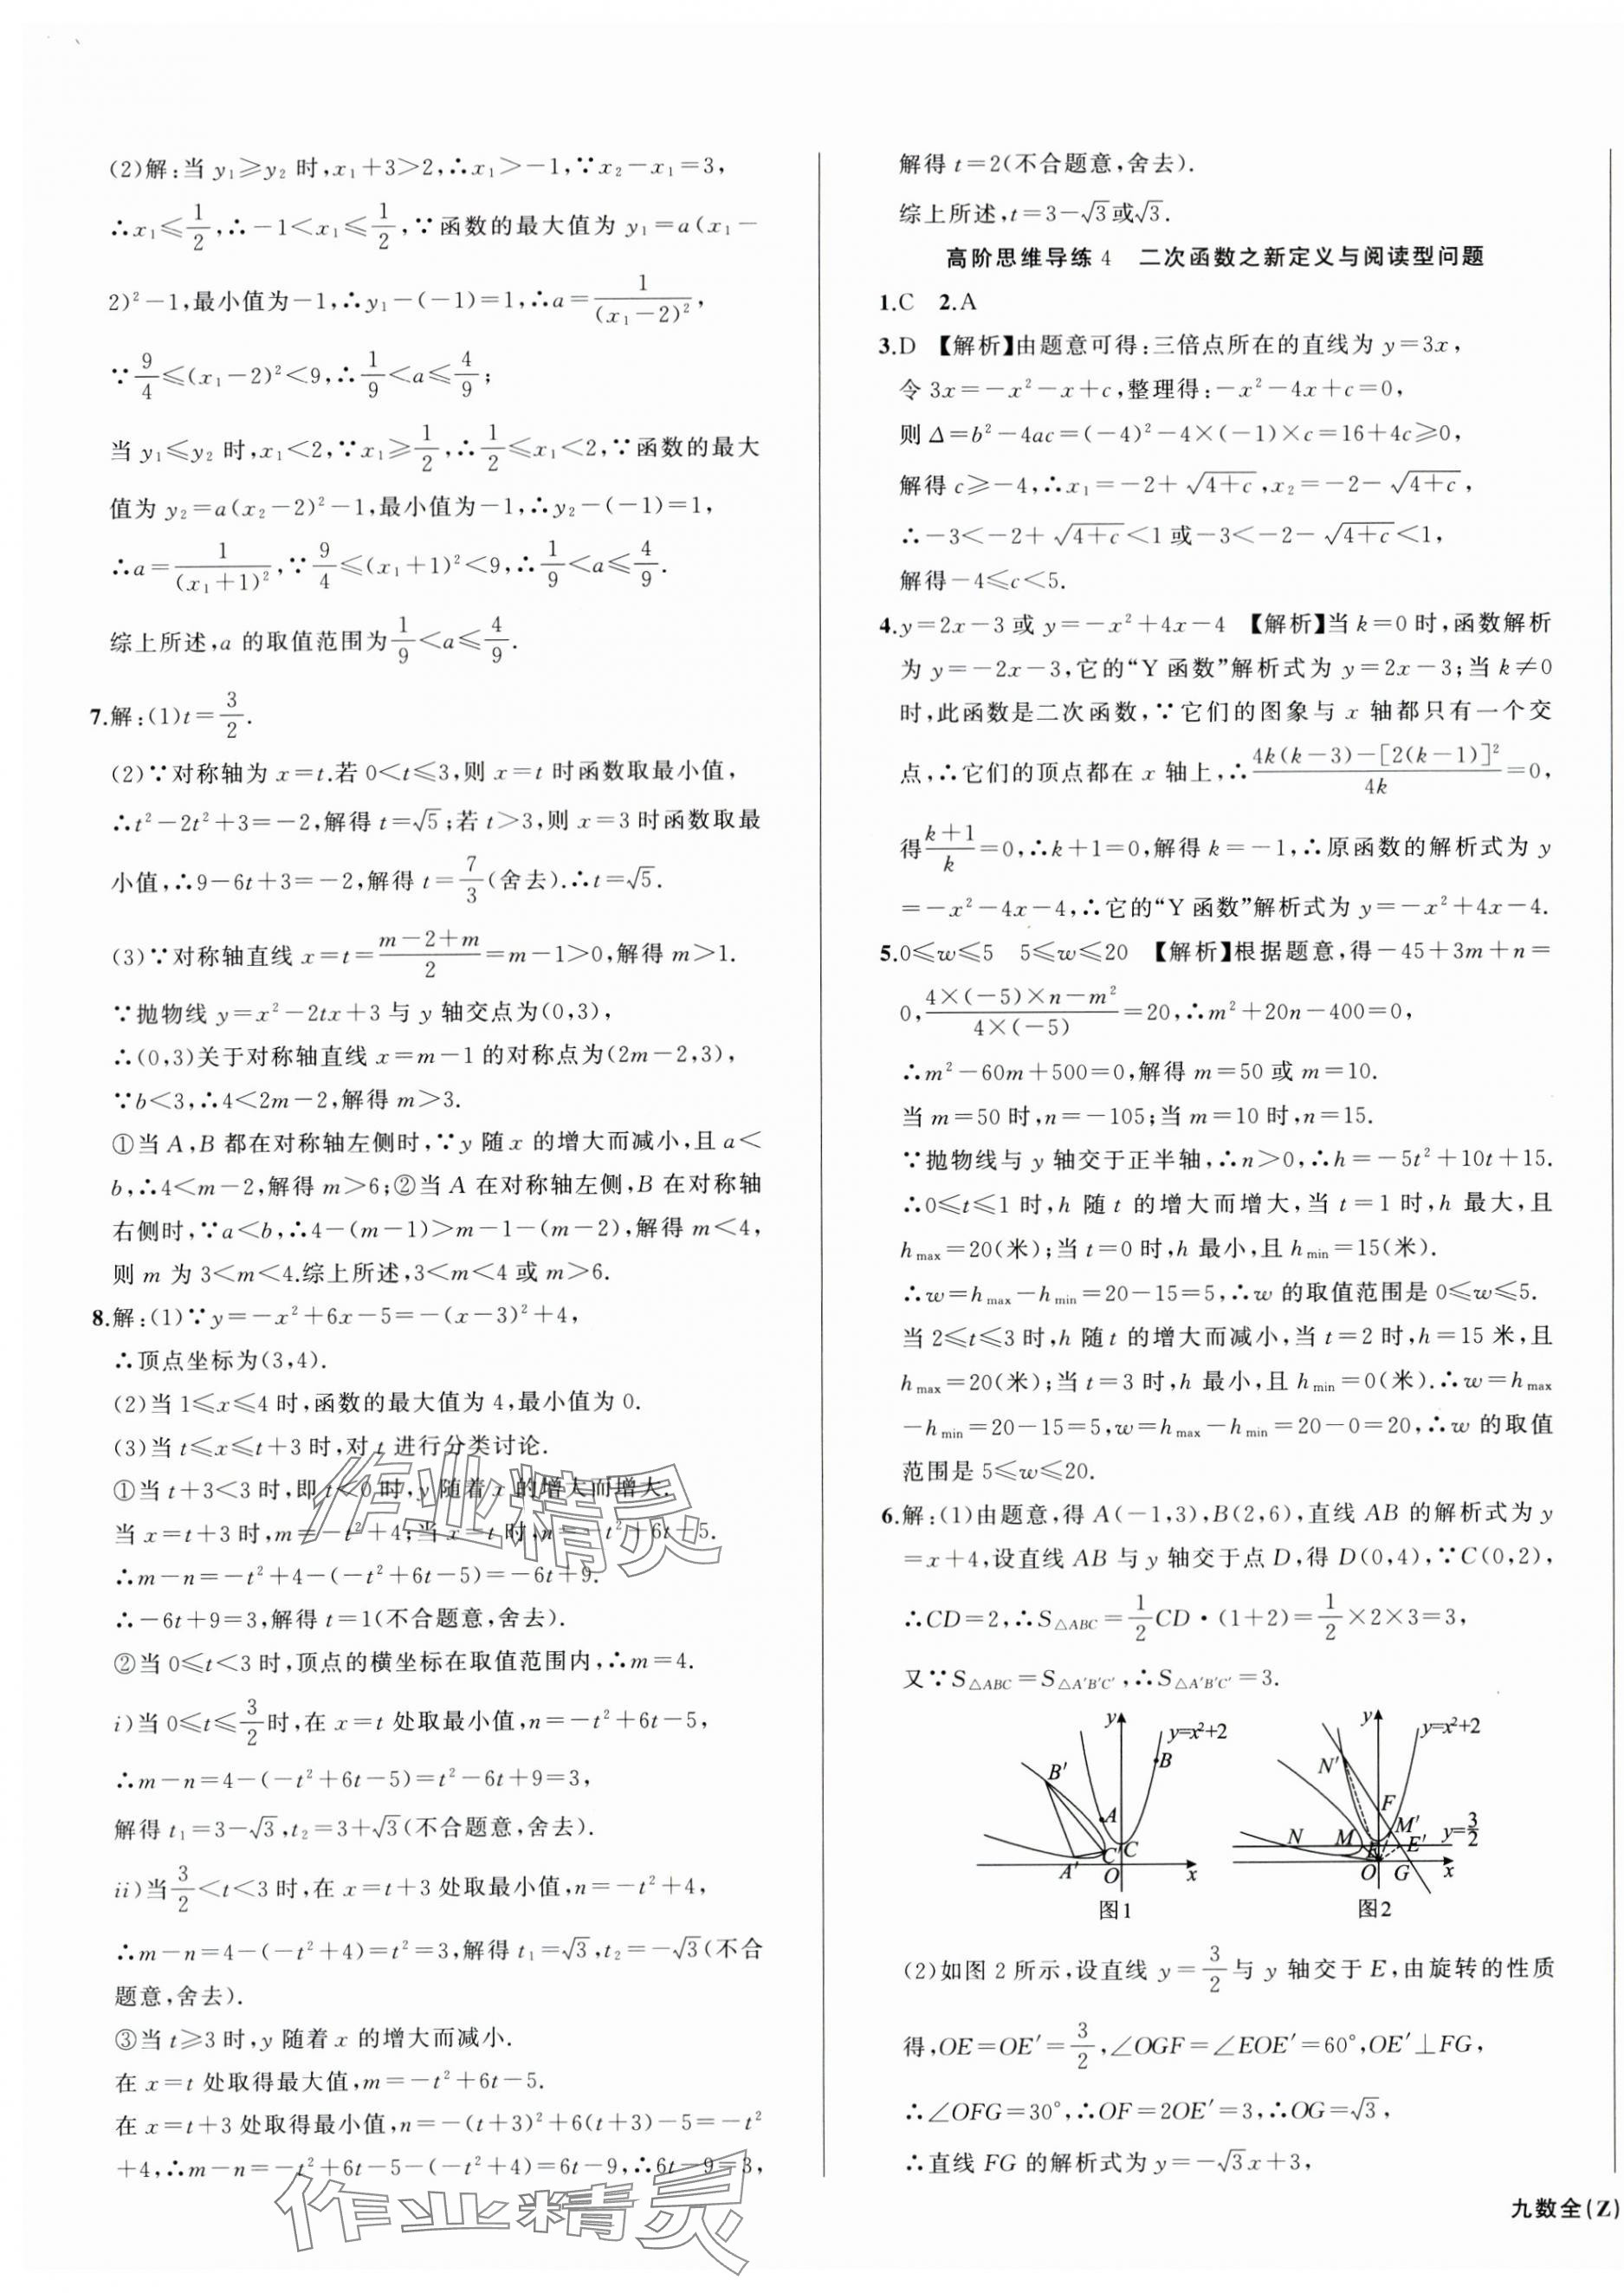 (2)解:当 y₁≥y₂ 时,x₁+3>2,∴x₁>-1,∵x₂-x₁=3,
∴x₁≤1/2,∴-1<x₁≤1/2,∵函数的最大值为 y₁=a(x₁-
2)²-1,最小值为-1,∴y₁-(-1)=1,∴a=1/(x₁-2)²,
∵9/4≤(x₁-2)²<9,∴1/9<a≤4/9;
当 y₁≤y₂ 时,x₁<2,∵x₁≥1/2,∴1/2≤x₁<2,∵函数的最大
值为 y₂=a(x₂-2)²-1,最小值为-1,∴y₂-(-1)=1,
∴a=1/(x₁+1)²,∵9/4≤(x₁+1)²<9,∴1/9<a≤4/9.
综上所述,a 的取值范围为1/9<a≤4/9.
7.解:(1)t=3/2.
(2)∵对称轴为 x=t.若 0<t≤3,则 x=t 时函数取最小值,
∴t²-2t²+3=-2,解得 t=√5;若 t>3,则 x=3 时函数取最
小值,∴9-6t+3=-2,解得 t=7/3(舍去).∴t=√5.
(3)∵对称轴直线 x=t=(m-2+m)/2=m-1>0,解得 m>1.
∵抛物线 y=x²-2tx+3 与 y 轴交点为(0,3),
∴(0,3)关于对称轴直线 x=m-1 的对称点为(2m-2,3),
∵b<3,∴4<2m-2,解得 m>3.
①当 A,B 都在对称轴左侧时,∵y 随 x 的增大而减小,且 a<
b,∴4<m-2,解得 m>6;②当 A 在对称轴左侧,B 在对称轴
右侧时,∵a<b,∴4-(m-1)>m-1-(m-2),解得 m<4,
则 m 为 3<m<4.综上所述,3<m<4 或 m>6.
8.解:(1)∵y=-x²+6x-5=-(x-3)²+4,
∴顶点坐标为(3,4).
(2)当 1≤x≤4 时,函数的最大值为 4,最小值为 0.
(3)当 t≤x≤t+3 时,对 t 进行分类讨论.
①当 t+3<3 时,即 t<0 时,y 随着 x 的增大而增大.
当 x=t+3 时,m=-t²+4;当 x=t 时,n=-t²+6t-5.
∴m-n=-t²+4-(-t²+6t-5)=-6t+9.
∴-6t+9=3,解得 t=1(不合题意,舍去).
②当 0≤t<3 时,顶点的横坐标在取值范围内,∴m=4.
i)当 0≤t≤3/2时,在 x=t 处取最小值,n=-t²+6t-5,
∴m-n=4-(-t²+6t-5)=t²-6t+9=3,
解得 t₁=3-√3,t₂=3+√3(不合题意,舍去).
ii)当3/2<t<3 时,在 x=t+3 处取最小值,n=-t²+4,
∴m-n=4-(-t²+4)=t²=3,解得 t₁=√3,t₂=-√3(不合
题意,舍去).
③当 t≥3 时,y 随着 x 的增大而减小.
在 x=t 处取得最大值,m=-t²+6t-5.
在 x=t+3 处取得最小值,n=-(t+3)²+6(t+3)-5=-t²
+4,∴m-n=-t²+6t-5-(-t²+4)=6t-9,∴6t-9=3,
作业精灵
作业精灵
解得 t=2(不合题意,舍去).
综上所述,t=3-√3或√3.
高阶思维导练 4 二次函数之新定义与阅读型问题
1.C 2.A
3.D 【解析】由题意可得:三倍点所在的直线为 y=3x,
令 3x=-x²-x+c,整理得:-x²-4x+c=0,
则 Δ=b²-4ac=(-4)²-4×(-1)×c=16+4c≥0,
解得 c≥-4,∴x₁=-2+√(4+c),x₂=-2-√(4+c),
∴-3<-2+√(4+c)<1 或-3<-2-√(4+c)<1,
解得-4≤c<5.
4.y=2x-3 或 y=-x²+4x-4 【解析】当 k=0 时,函数解析
为 y=-2x-3,它的“Y 函数”解析式为 y=2x-3;当 k≠0
时,此函数是二次函数,∵它们的图象与 x 轴都只有一个交
点,∴它们的顶点都在 x 轴上,∴(4k(k-3)-[2(k-1)]²)/4k=0,
得(k+1)/k=0,∴k+1=0,解得 k=-1,∴原函数的解析式为 y
=-x²-4x-4,∴它的“Y 函数”解析式为 y=-x²+4x-4.
5.0≤w≤5 5≤w≤20 【解析】根据题意,得-45+3m+n=
0,(4×(-5)×n-m²)/(4×(-5))=20,∴m²+20n-400=0,
∴m²-60m+500=0,解得 m=50 或 m=10.
当 m=50 时,n=-105;当 m=10 时,n=15.
∵抛物线与 y 轴交于正半轴,∴n>0,∴h=-5t²+10t+15.
∴0≤t≤1 时,h 随 t 的增大而增大,当 t=1 时,h 最大,且
hmax=20(米);当 t=0 时,h 最小,且 hmin=15(米).
∴w=hmax-hmin=20-15=5,∴w 的取值范围是 0≤w≤5.
当 2≤t≤3 时,h 随 t 的增大而减小,当 t=2 时,h=15 米,且
hmax=20(米);当 t=3 时,h 最小,且 hmin=0(米).∴w=hmax
-hmin=20-15=5,w=hmax-hmin=20-0=20,∴w 的取值
范围是 5≤w≤20.
6.解:(1)由题意,得 A(-1,3),B(2,6),直线 AB 的解析式为 y
=x+4,设直线 AB 与 y 轴交于点 D,得 D(0,4),∵C(0,2),
∴CD=2,∴S△ABC=1/2CD·(1+2)=1/2×2×3=3,
又∵S△ABC=S△A′B′C′,∴S△A′B′C′=3.
y y=x²+2 B B′ A C′ C A′ O x
图1
y y=x²+2 N′ F M′ N M E E′ y=3/2 O G x
图2
(2)如图 2 所示,设直线 y=3/2与 y 轴交于 E,由旋转的性质
得,OE=OE′=3/2,∠OGF=∠EOE′=60°,OE′⊥FG,
∴∠OFG=30°,∴OF=2OE′=3,∴OG=√3,
∴直线 FG 的解析式为 y=-√3x+3,
九数全(Z)